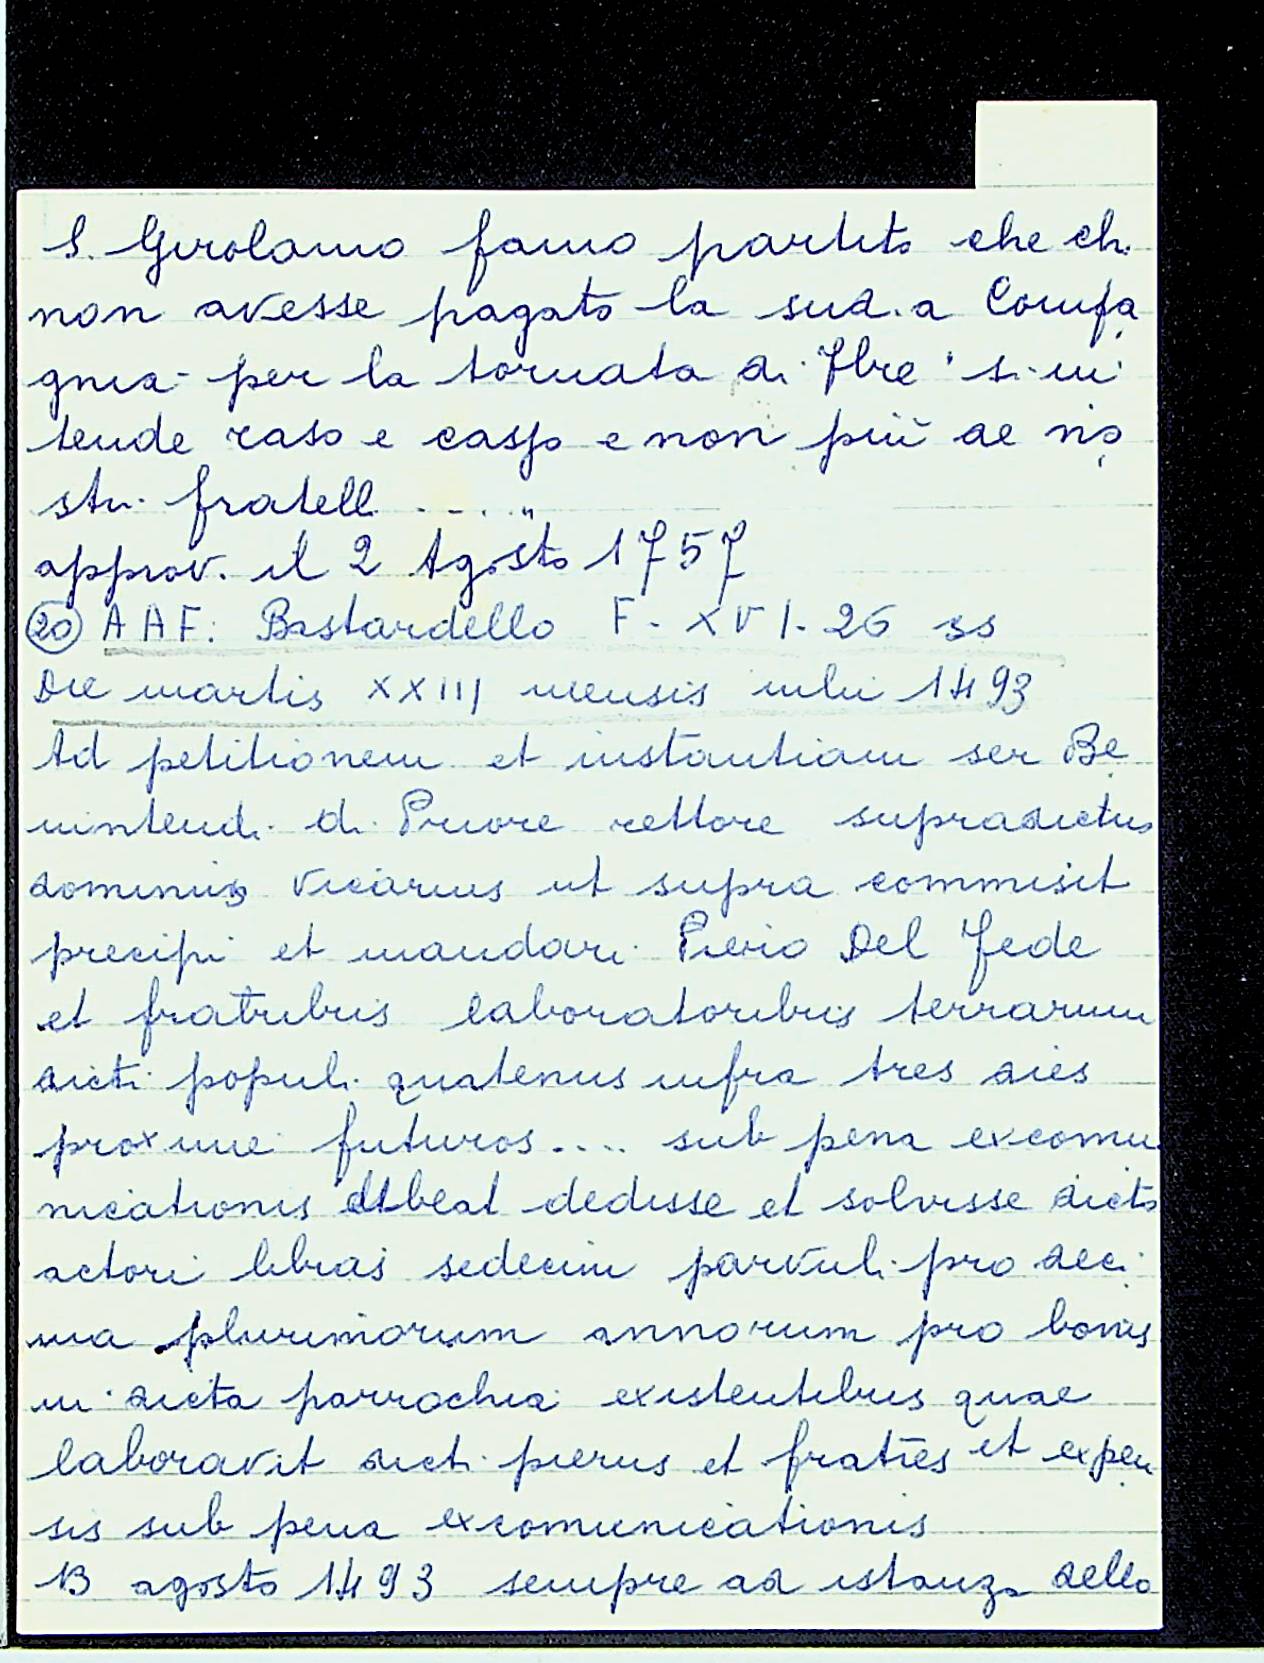 S. Girolamo fanno partito che chi
non avesse pagato la sud.a Compa
gnia per la tornata di 7bre si in
tende raso e casso e non più de no
stri fratelli ...."
approv. il 2 Agosto 1757
(20) AAF. Bastardello F. XVI. 26 ss
Die martis XXIII mensis iulii 1493
Ad petitionem et instantiam ser Be
nintendi di Priore rettore supradictus
dominus vicarius ut supra commisit
precipi et mandari Pierio Del Fede
et fratribus laboratoribus terrarum
dicti populi quatenus infra tres dies
proxime futuros .... sub pena excomu
nicationis debeat dedisse et solvisse dicto
actori libras sedecim parvuli pro deci
ma plurimorum annorum pro bonis
in dicta parrochia existentibus quae
laboravit dicti pierus et fratres et expen
sis sub pena excomunicationis
13 agosto 1493 sempre ad istanza dello